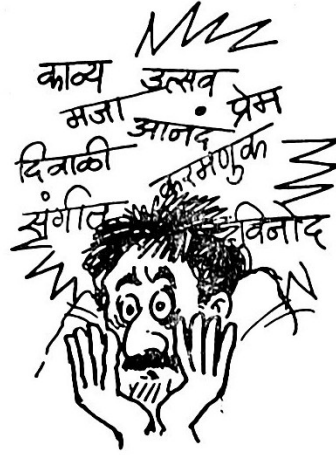 काव्य उत्सव
मजा आनंद प्रेम
दिवाळी करमणूक
संगीत विनोद